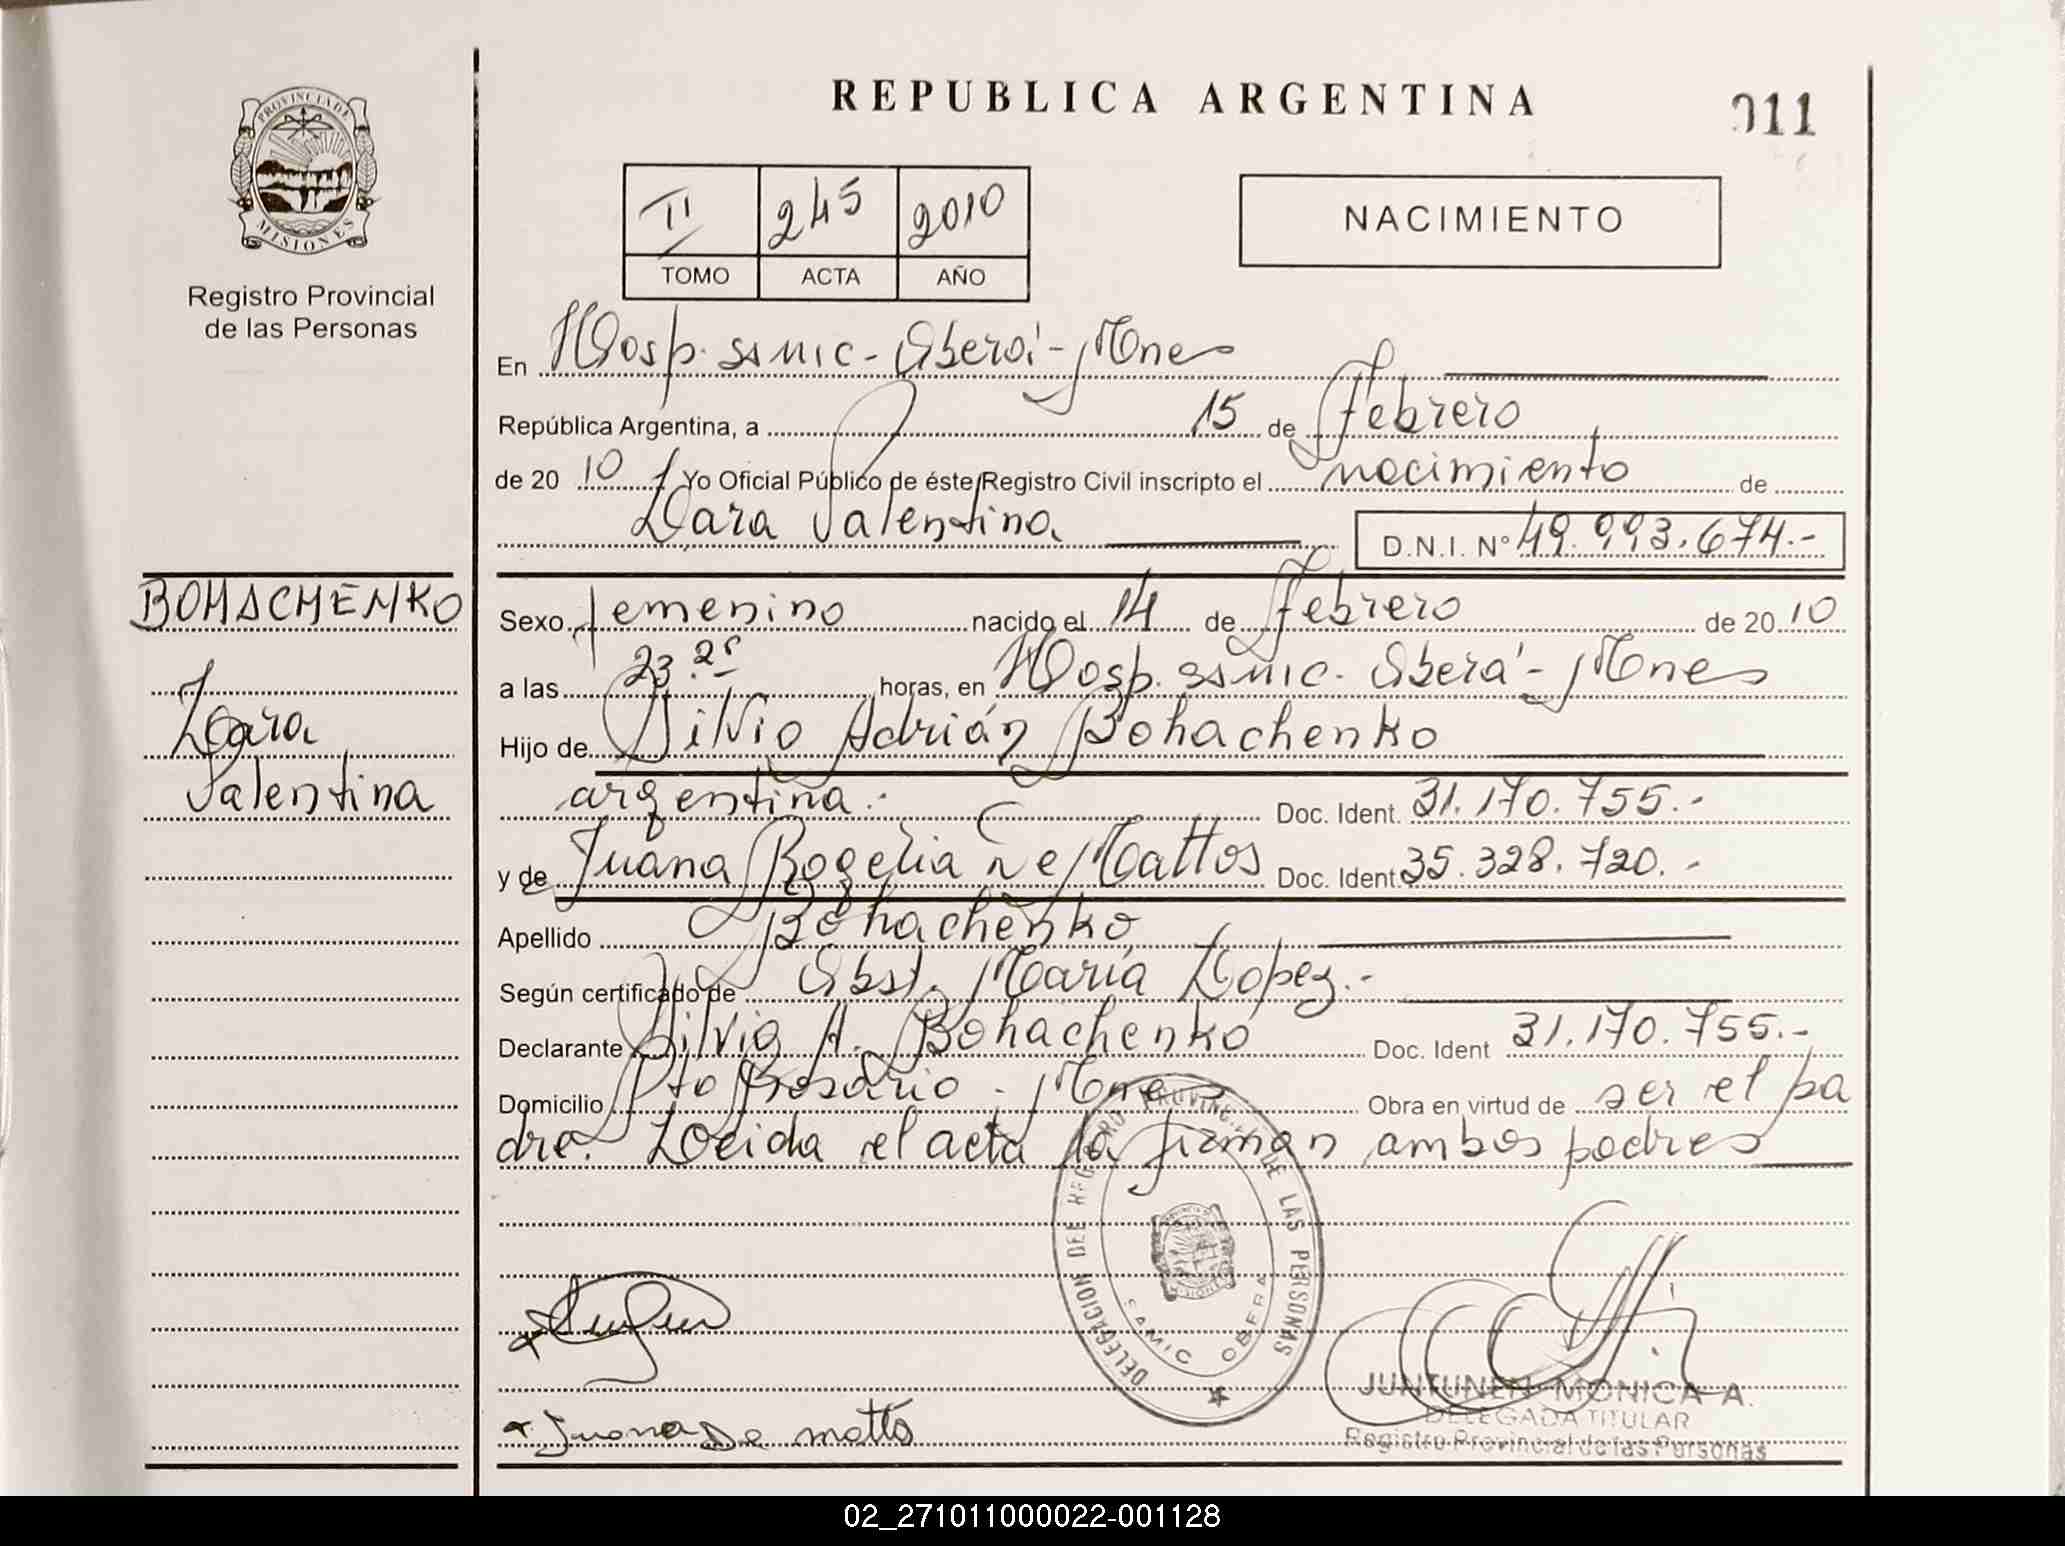 REPUBLICA ARGENTINA
011
PROVINCIA DE
MISIONES
Registro Provincial
de las Personas
II 245 2010
TOMO ACTA AÑO
NACIMIENTO
En Hosp. SAMIC - Oberá - Mnes
República Argentina, a 15 de Febrero
de 20 10 Yo Oficial Público de éste Registro Civil inscripto el nacimiento de
Lara Valentina D.N.I. N° 49.993.674.-
BOHACHENKO
Lara
Valentina
Sexo femenino nacido el 14 de Febrero de 20 10
a las 23.25 horas, en Hosp. SAMIC. Oberá - Mnes
Hijo de Silvio Adrián Bohachenko
argentina.- Doc. Ident. 31.170.755.-
y de Juana Rogelia De Mattos Doc. Ident. 35.328.720.-
Apellido Bohachenko
Según certificado de Obst. María Lopez.-
Declarante Silvio A. Bohachenko Doc. Ident 31.170.755.-
Domicilio Pto Rosario - Mnes Obra en virtud de ser el pa
dre. Leída el acta la firman ambos padres
DELEGACION DEL REGISTRO PROVINCIAL DE LAS PERSONAS
SAMIC OBERA
MISIONES
Juana De mattos
JUNTUNEN MONICA A.
DELEGADA TITULAR
Registro Provincial de las Personas
02_271011000022-001128